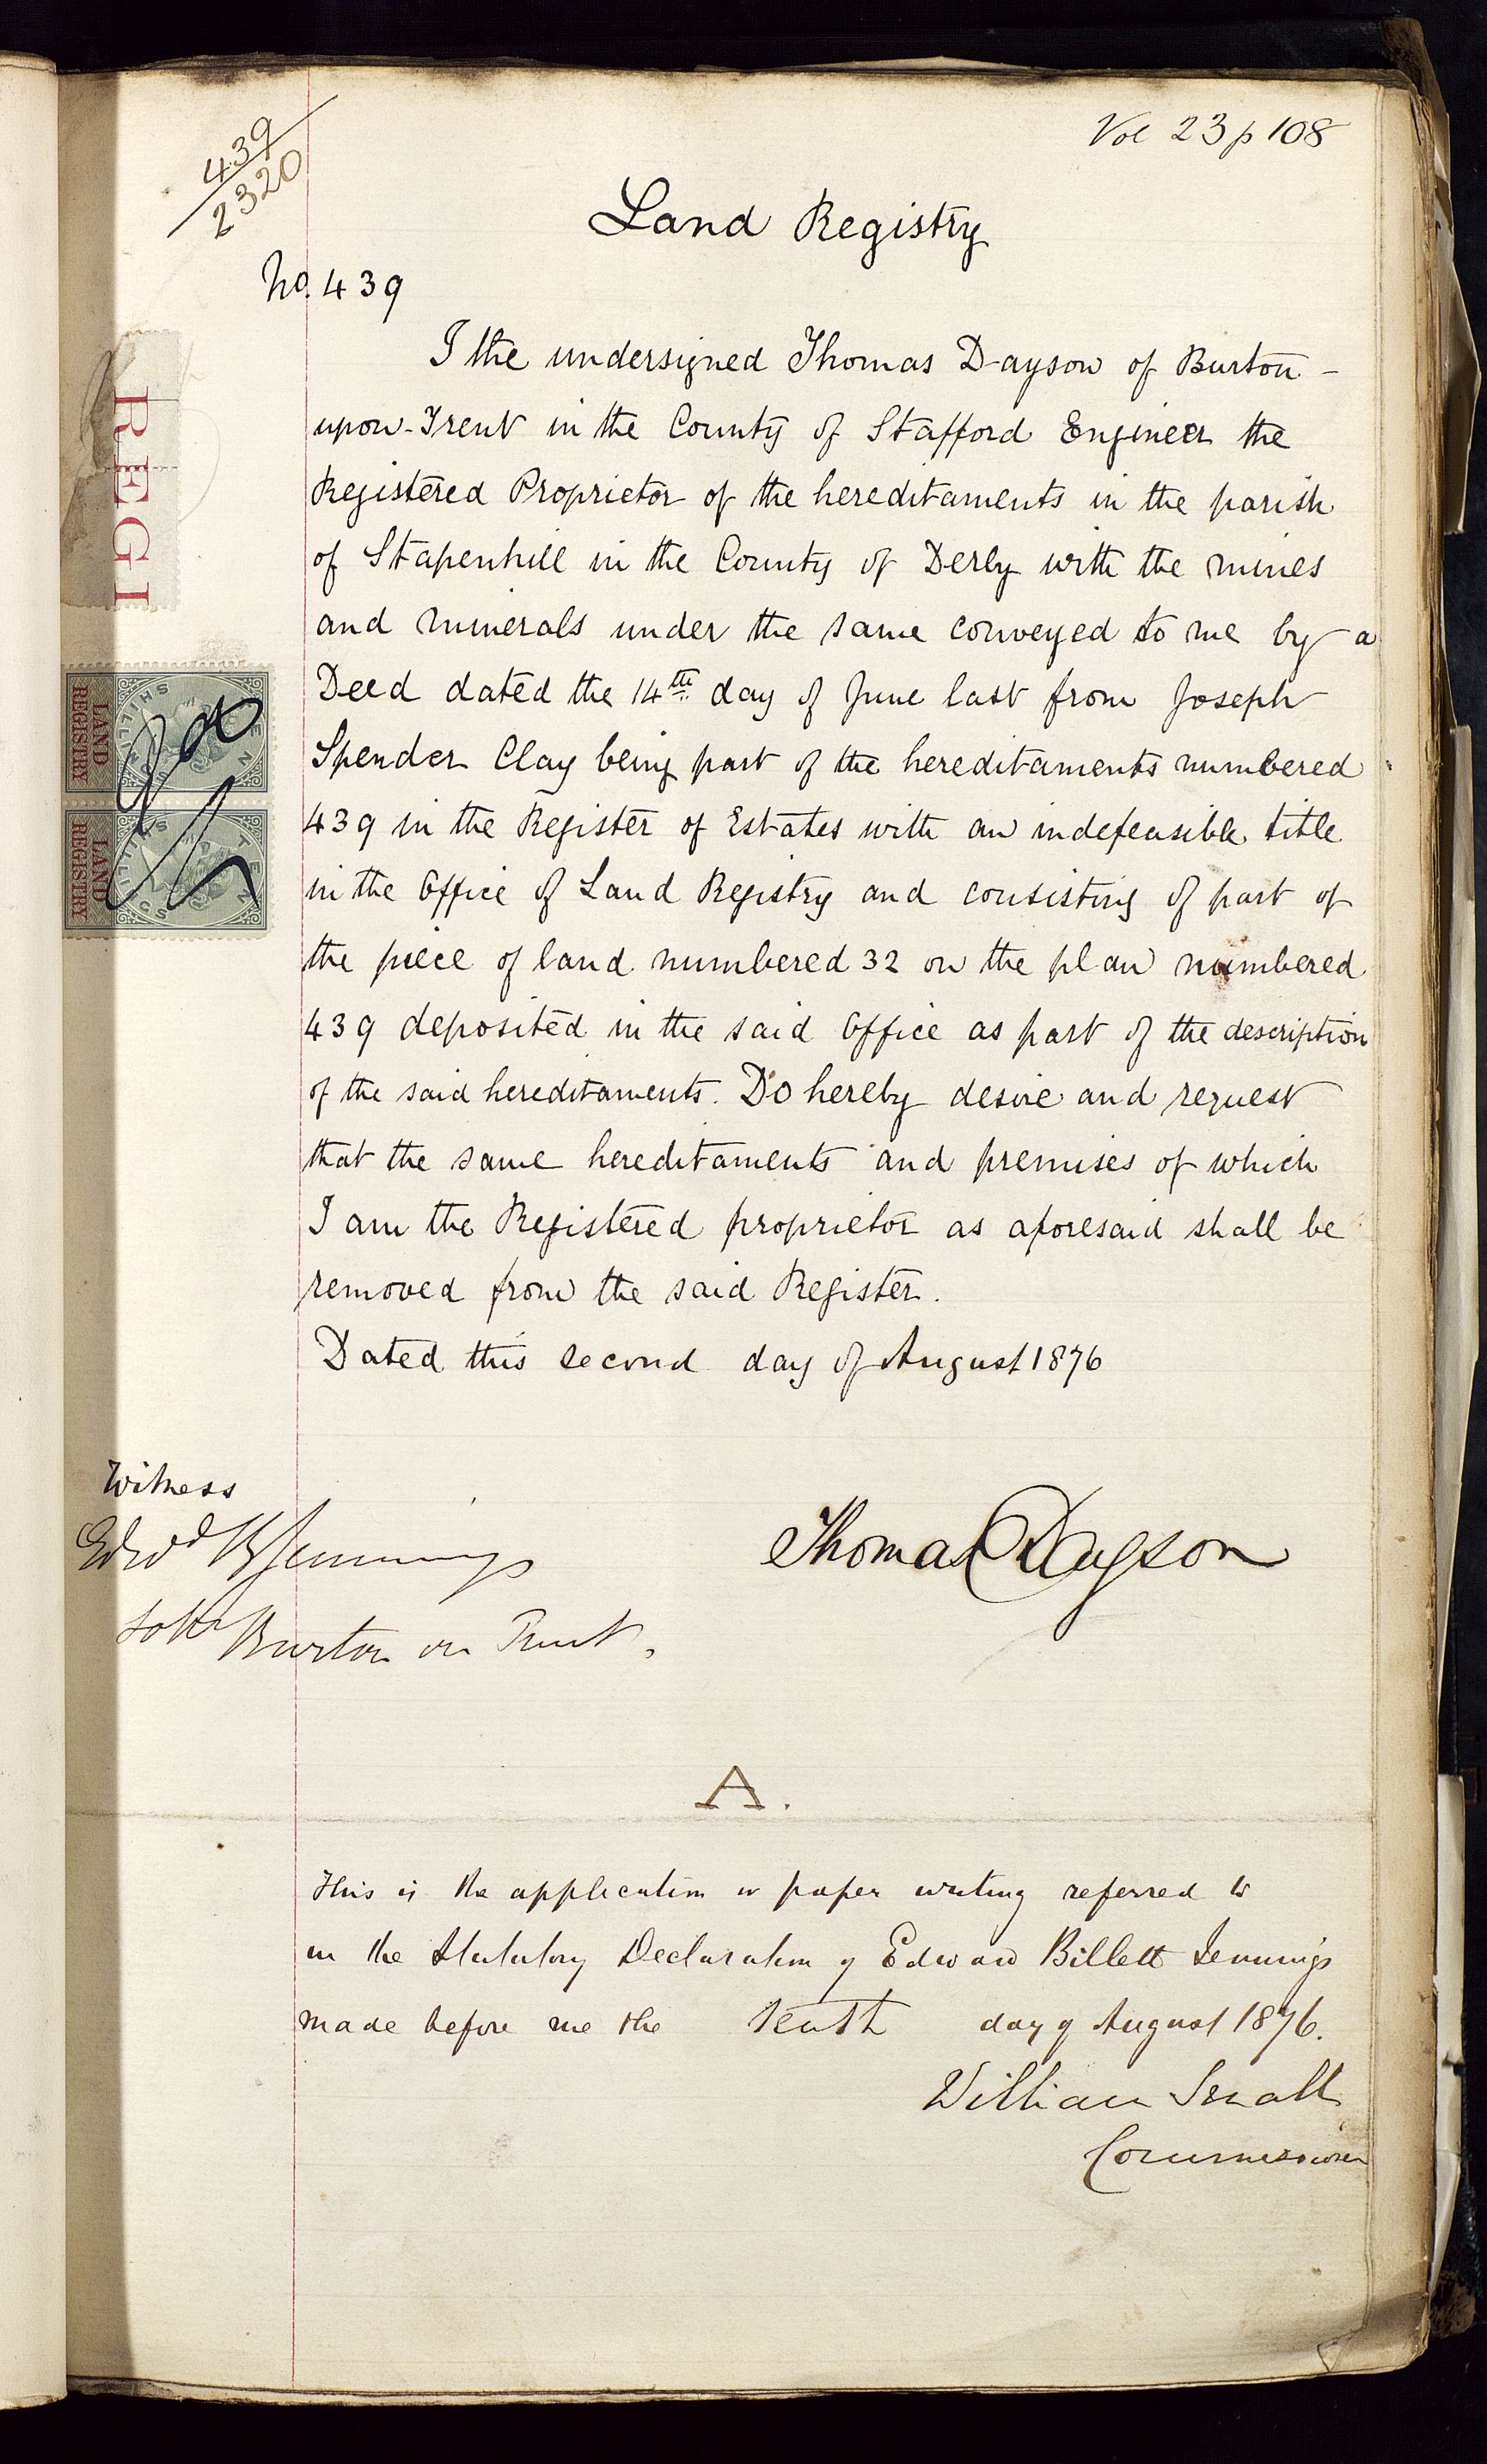 439
2320
Vol 23 p 108
Land Registry
No. 439
I the undersigned Thomas Dayson of Burton -
upon-Trent in the County of Stafford Engineer the
Registered Proprietor of the hereditaments in the parish
of Stapenhill in the County of Derby with the mines
and minerals under the same conveyed to me by a
Deed dated the 14th day of June last from Joseph
Spender Clay being part of the hereditaments numbered
439 in the Register of Estates with an indefeasible title
in the Office of Land Registry and consisting of part of
the piece of land numbered 32 on the plan numbered
439 deposited in the said Office as part of the description
of the said hereditaments. Do hereby desire and request
that the same hereditaments and premises of which
I am the Registered proprietor as aforesaid shall be
removed from the said Register.
Dated this second day of August 1876
REGI
LAND
REGISTRY
TEN SHILLINGS
LAND
REGISTRY
TEN SHILLINGS
Witness
Edwd B Jennings
Solr Burton on Trent.
Thomas Dayson
A.
This is the application or paper writing referred to
in the Statutory Declaration of Edward Billett Jennings
made before me the tenth day of August 1876.
William Small
Commissioner